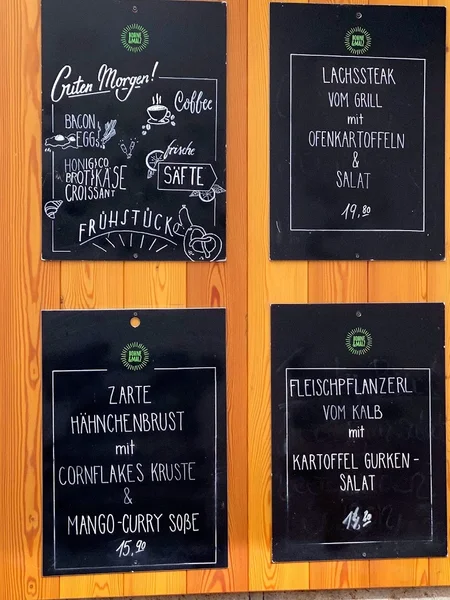 BOHNE
&MALZ
Guten Morgen!
Coffee
BACON
EGG
frische
SÄFTE
HONIG&CO
BROT&KÄSE
CROISSANT
FRÜHSTÜCK
BOHNE
&MALZ
LACHSSTEAK
VOM GRILL
mit
OFENKARTOFFELN
&
SALAT
19,80
BOHNE
&MALZ
ZARTE
HÄHNCHENBRUST
mit
CORNFLAKES KRUSTE
&
MANGO-CURRY SOßE
15,90
BOHNE
&MALZ
FLEISCHPFLANZERL
VOM KALB
mit
KARTOFFEL GURKEN-
SALAT